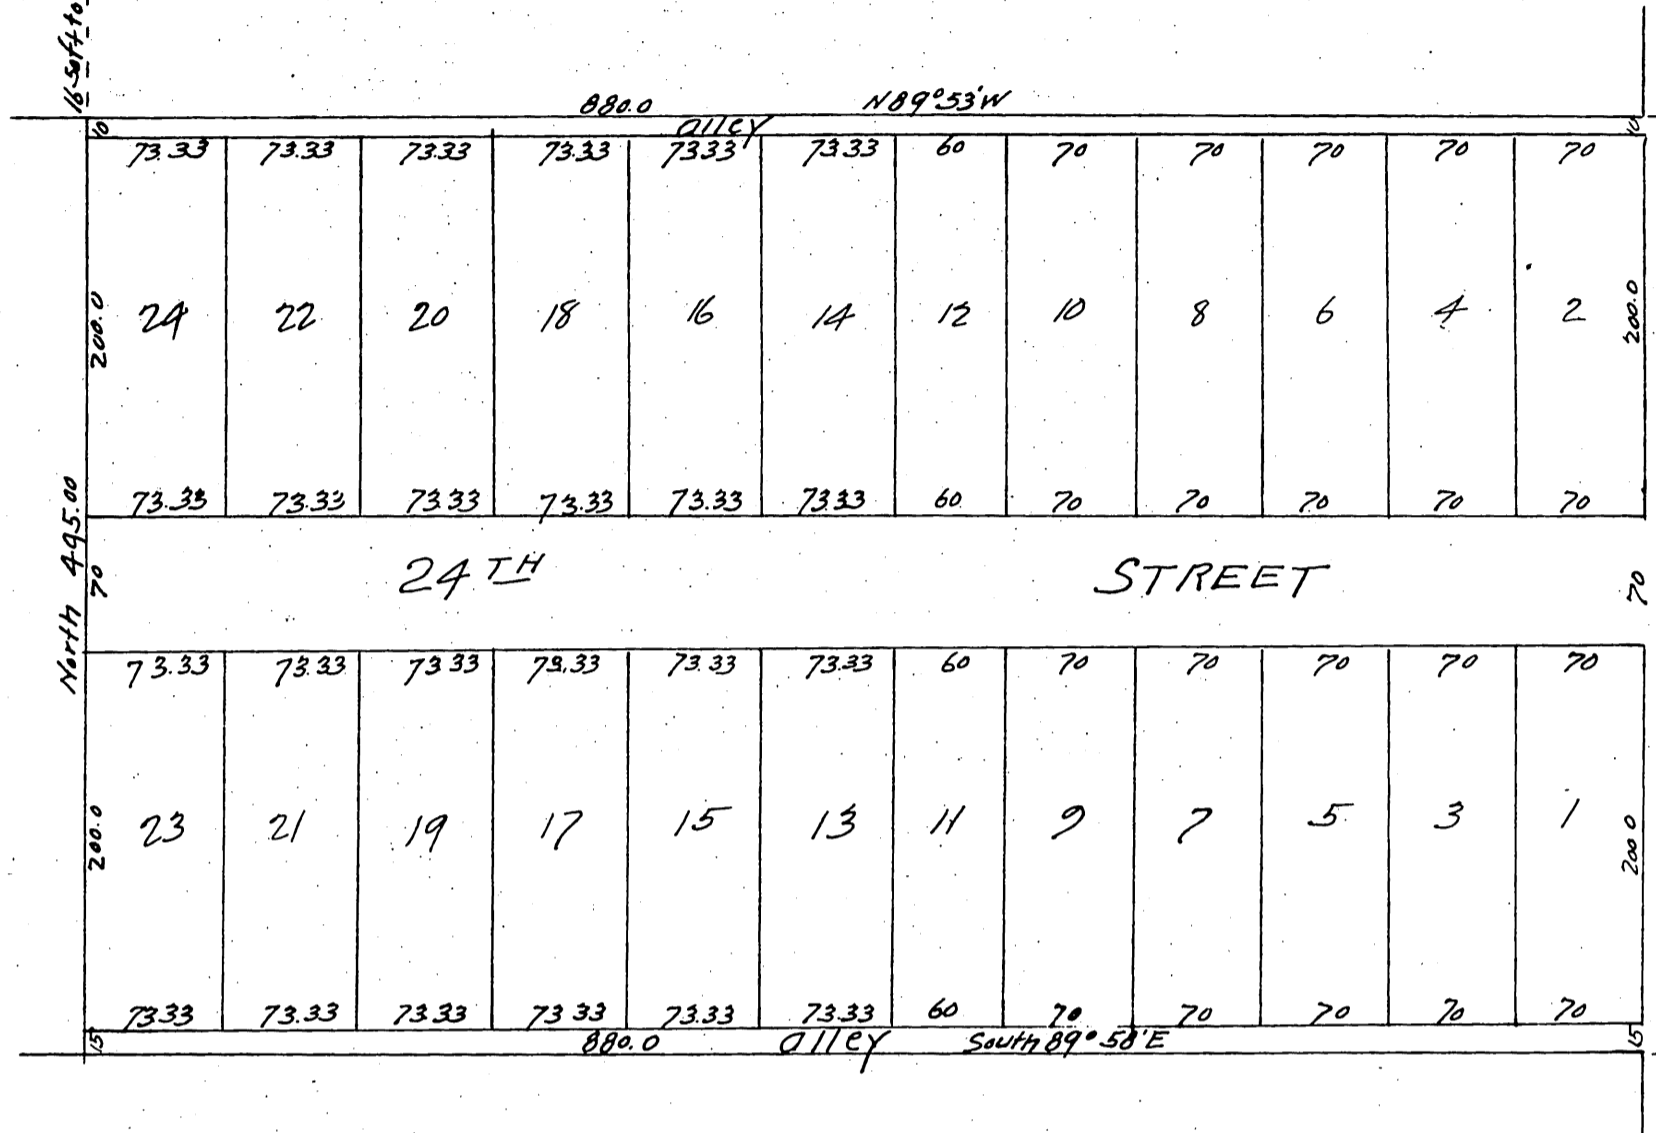 16 soft to
880.0 N89°53'W
alley
10 10
73.33 73.33 73.33 73.33 7333 73.33 60 70 70 70 70 70
200.0 24 22 20 18 16 14 12 10 8 6 4 2 200.0
73.33 73.33 73.33 73.33 73.33 73.33 60 70 70 70 70 70
North 495.00
70 24TH STREET 70
73.33 73.33 73 33 73.33 73.33 73.33 60 70 70 70 70 70
200.0 23 21 19 17 15 13 11 9 7 5 3 1 200 0
7333 73.33 73 33 73 33 73.33 73.33 60 70 70 70 70 70
15 880.0 alley South 89° 58'E 15